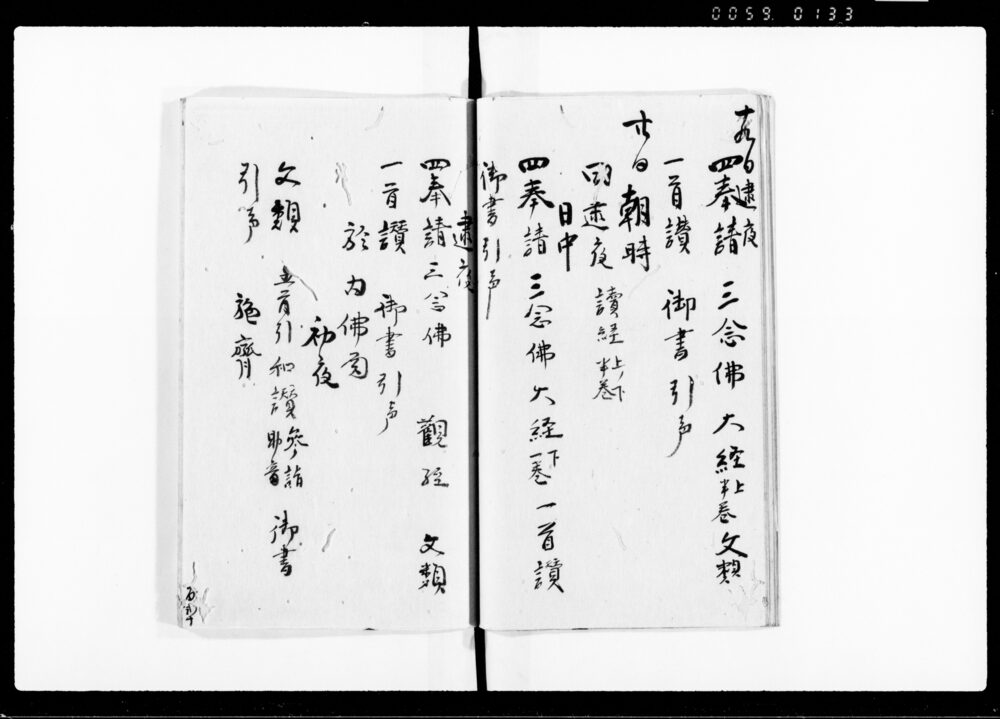 0059. 0133
十九日逮夜
四奉請 三念佛 大経上半巻 文類
一首讃 御書 引声
廿日 朝時
逮夜 讀経上下半巻
日中
四奉請 三念佛 大経下一巻 一首讃
御書 引声
逮夜
四奉請 三念佛 觀経 文類
一首讃 御書 引声
於内佛
初夜
文類 五首引和讃 参詣助音 御書
引声 施齋